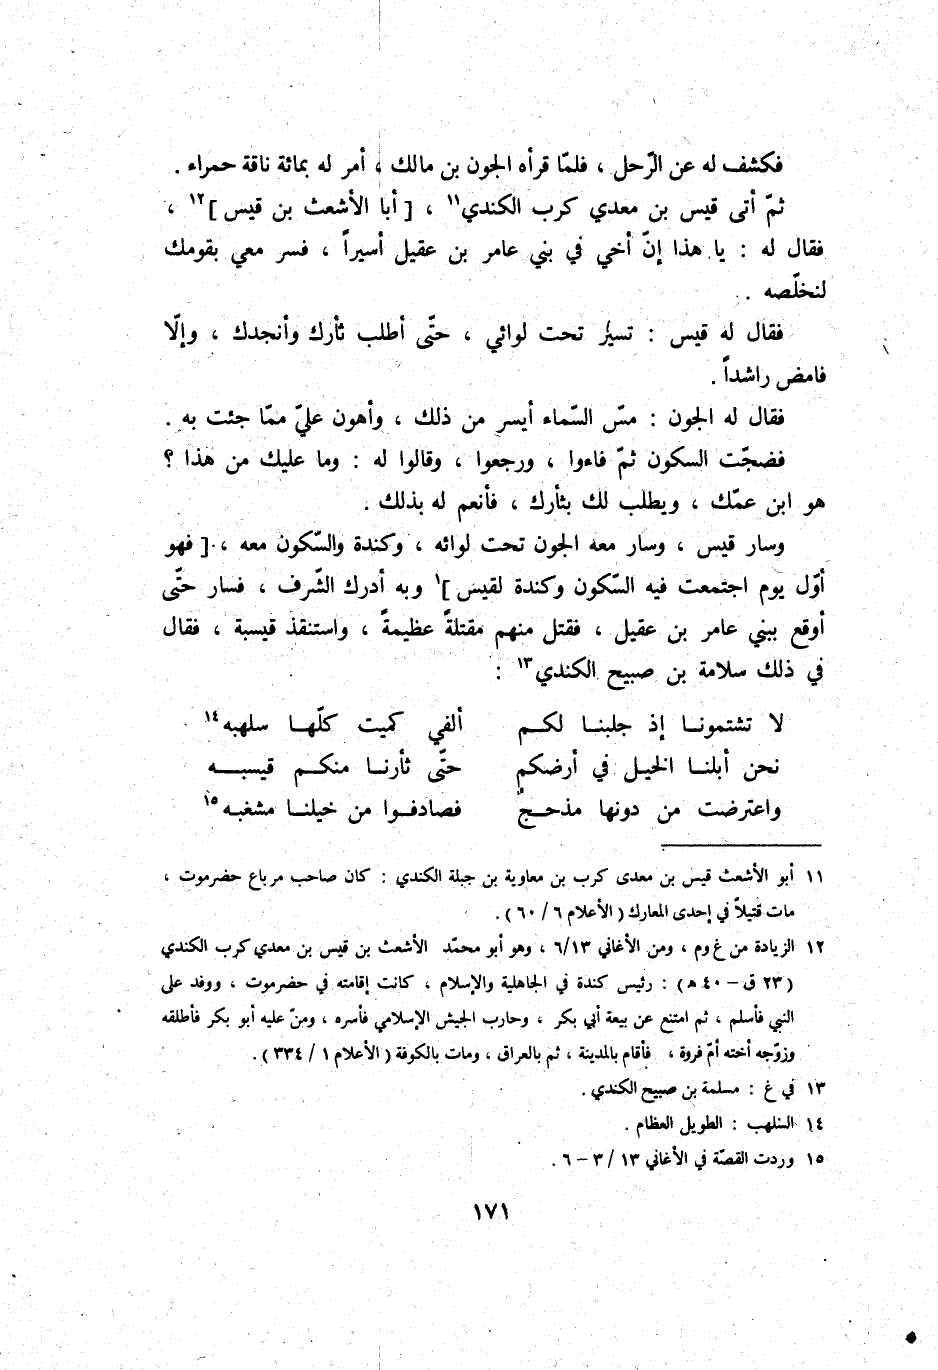 فكشف له عن الرّحل ، فلمّا قرأه الجون بن مالك ، أمر له بمائة ناقة حمراء .
ثمّ أتى قيس بن معدي كرب الكندي١١ ، [ أبا الأشعث بن قيس ]١٢ ،
فقال له : يا هذا إنّ أخي في بني عامر بن عقيل أسيراً ، فسر معي بقومك
لنخلّصه .
فقال له قيس : تسير تحت لوائي ، حتّى أطلب ثأرك وأنجدك ، وإلّا
فامض راشداً .
فقال له الجون : مسّ السّماء أيسر من ذلك ، وأهون عليّ ممّا جئت به .
فضجّت السكون ثمّ فاءوا ، ورجعوا ، وقالوا له : وما عليك من هذا ؟
هو ابن عمّك ، ويطلب لك بثأرك ، فأنعم له بذلك .
وسار قيس ، وسار معه الجون تحت لوائه ، وكندة والسّكون معه ، [ فهو
أوّل يوم اجتمعت فيه السّكون وكندة لقيس ]١ وبه أدرك الشّرف ، فسار حتّى
أوقع ببني عامر بن عقيل ، فقتل منهم مقتلةً عظيمةً ، واستنقذ قيسبة ، فقال
في ذلك سلامة بن صبيح الكندي١٣ :
لا تشتمونــا إذ جلبنــا لكــم ألفي كميت كلّهــا سلهبه١٤
نحن أبلنــا الخيــل في أرضكم حتّى ثأرنــا منكــم قيسبـــه
واعترضت من دونها مذحــجٌ فصادفــوا من خيلنــا مشغبــه١٥
١١ أبو الأشعث قيس بن معدى كرب بن معاوية بن جبلة الكندي : كان صاحب مرباع حضرموت ،
مات قتيلاً في إحدى المعارك ( الأعلام ٦ / ٦٠ ) .
١٢ الزيادة من غ وم ، ومن الأغاني ٦/١٣ ، وهو أبو محمّد الأشعث بن قيس بن معدي كرب الكندي
( ٢٣ ق – ٤٠ ه ) : رئيس كندة في الجاهلية والإسلام ، كانت إقامته في حضرموت ، ووفد على
النبي فأسلم ، ثم امتنع عن بيعة أبي بكر ، وحارب الجيش الإسلامي فأسره ، ومنّ عليه أبو بكر فأطلقه
وزوّجه أخته أمّ فروة ، فأقام بالمدينة ، ثم بالعراق ، ومات بالكوفة ( الأعلام ١ / ٣٣٤ ) .
١٣ في غ : مسلمة بن صبيح الكندي .
١٤ السّلهب : الطويل العظام .
١٥ وردت القصّة في الأغاني ١٣ / ٣ – ٦ .
١٧١